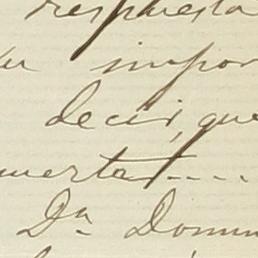 respuesta
su impor
decir, que
muertas....
Dª Domin